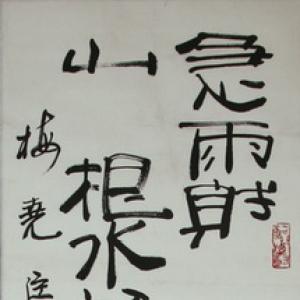 急雨射
山根水
梅堯